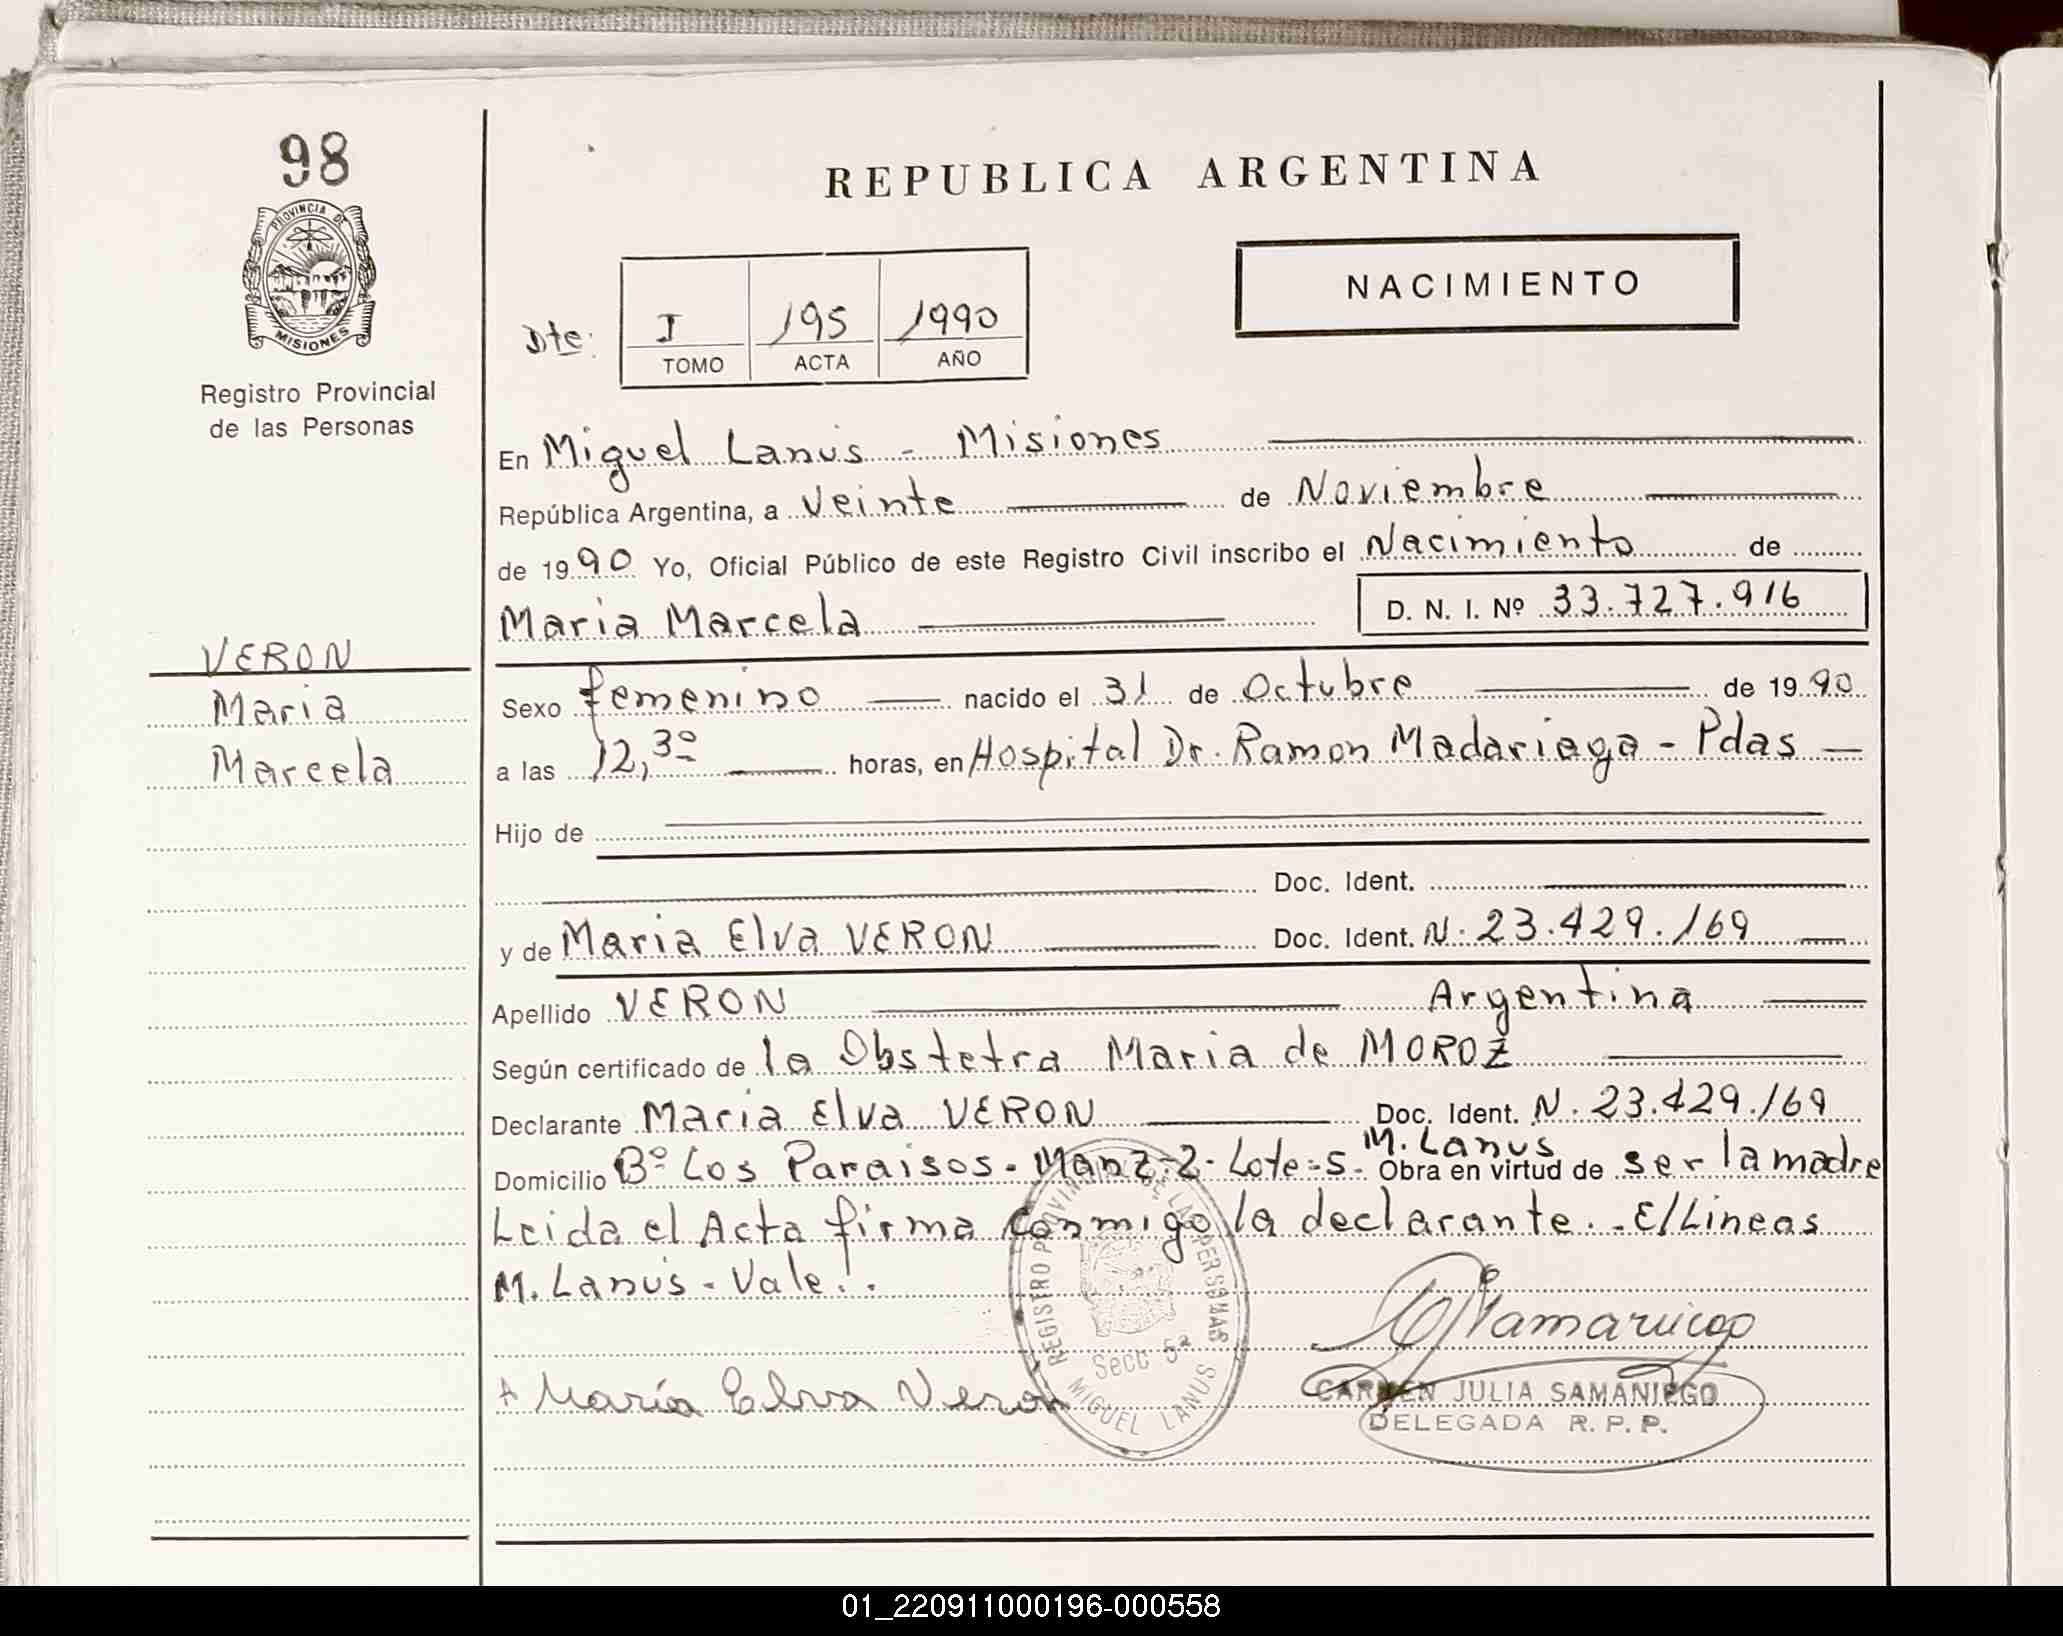 98
PROVINCIA DE
MISIONES
Registro Provincial
de las Personas
VERON
Maria
Marcela
REPUBLICA ARGENTINA
NACIMIENTO
Dto: I 195 1990
TOMO ACTA AÑO
En Miguel Lanús - Misiones
República Argentina, a Veinte de Noviembre
de 1990 Yo, Oficial Público de este Registro Civil inscribo el Nacimiento de
Maria Marcela D. N. I. Nº 33.727.916
Sexo femenino nacido el 31 de Octubre de 1990
a las 12,30 horas, en Hospital Dr. Ramon Madariaga - Pdas
Hijo de
Doc. Ident.
y de Maria Elva VERON Doc. Ident. N. 23.429.169
Apellido VERON Argentina
Según certificado de la Obstetra Maria de MOROZ
Declarante Maria Elva VERON Doc. Ident. N. 23.429.169
M. Lanus
Domicilio Bº Los Paraisos. Manz-2- Lote=5. Obra en virtud de ser la madre
Leida el Acta firma conmigo la declarante. - E/Lineas
M. Lanús - Vale!.
María Elva Veron
REGISTRO PROVINCIAL DE LAS PERSONAS
Secc 5ª
MIGUEL LANUS
CARMEN JULIA SAMANIEGO
DELEGADA R. P. P.
01_220911000196-000558